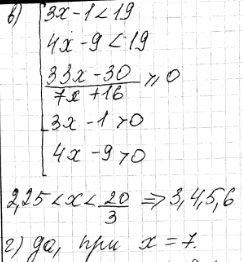 в) 3x - 1 < 19
4x - 9 < 19
33x - 30 / 7x + 16 ⩾ 0
3x - 1 > 0
4x - 9 > 0
2,25 < x < 20/3 ⇒ 3, 4, 5, 6
г) да, при x = 7.